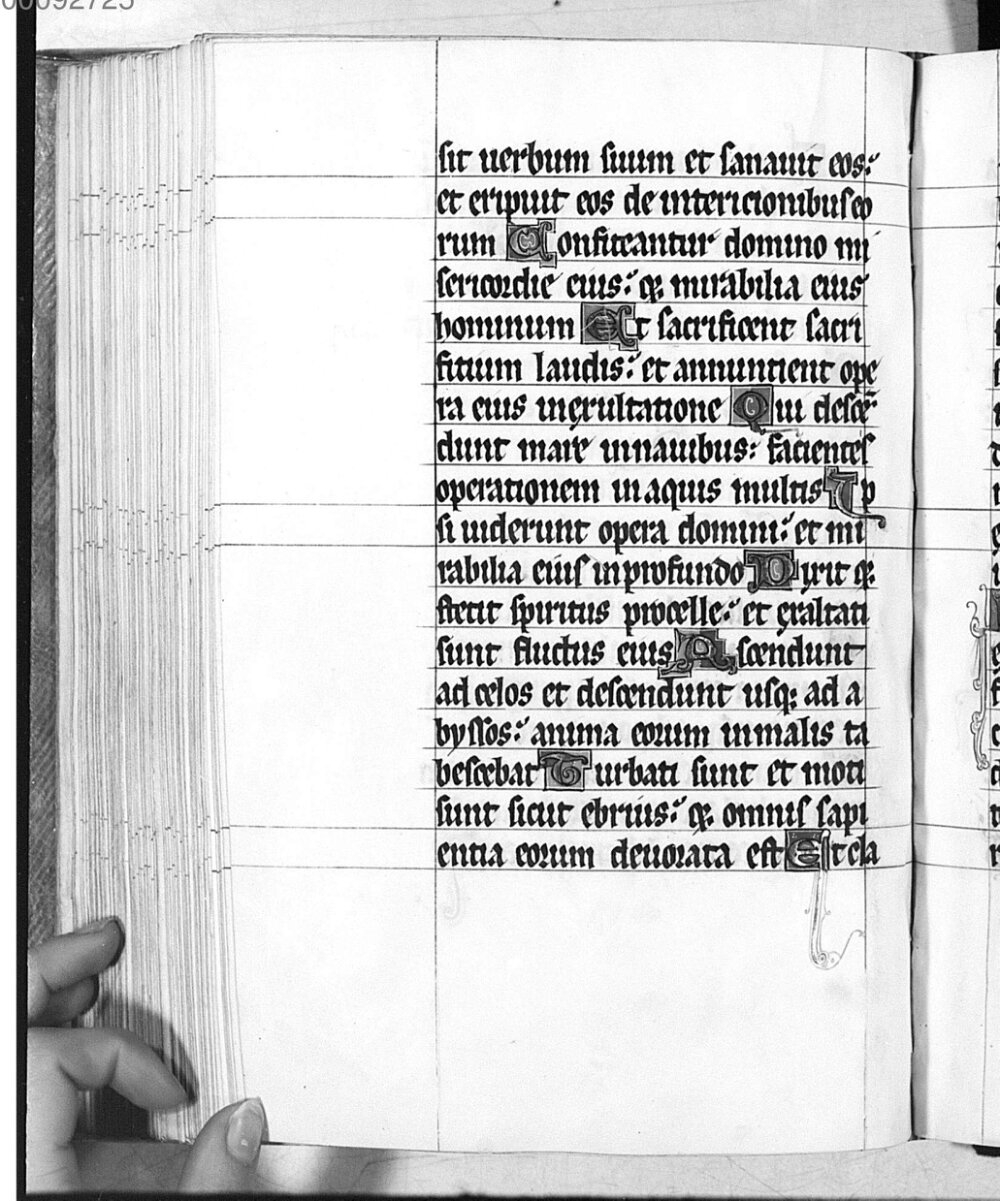 00092725
sit uerbum suum et sanauit eos:
et eripuit eos de intericionibus eo
rum Confiteantur domino mi
sericordie eius: q; mirabilia eius
hominum Et sacrificent sacri
fitium laudis: et annuntient ope
ra eius inexultatione Qui descē
dunt mare innauibus: facientes
operationem inaquis multis Ip
si uiderunt opera domini: et mi
rabilia eius inprofundo Dixit q;
stetit spiritus procelle: et exaltati
sunt fluctus eius Ascendunt
ad celos et descendunt usq; ad a
byssos: anima eorum inmalis ta
bescebat Turbati sunt et moti
sunt sicut ebrius: q; omnis sapi
entia eorum deuorata est Et cla